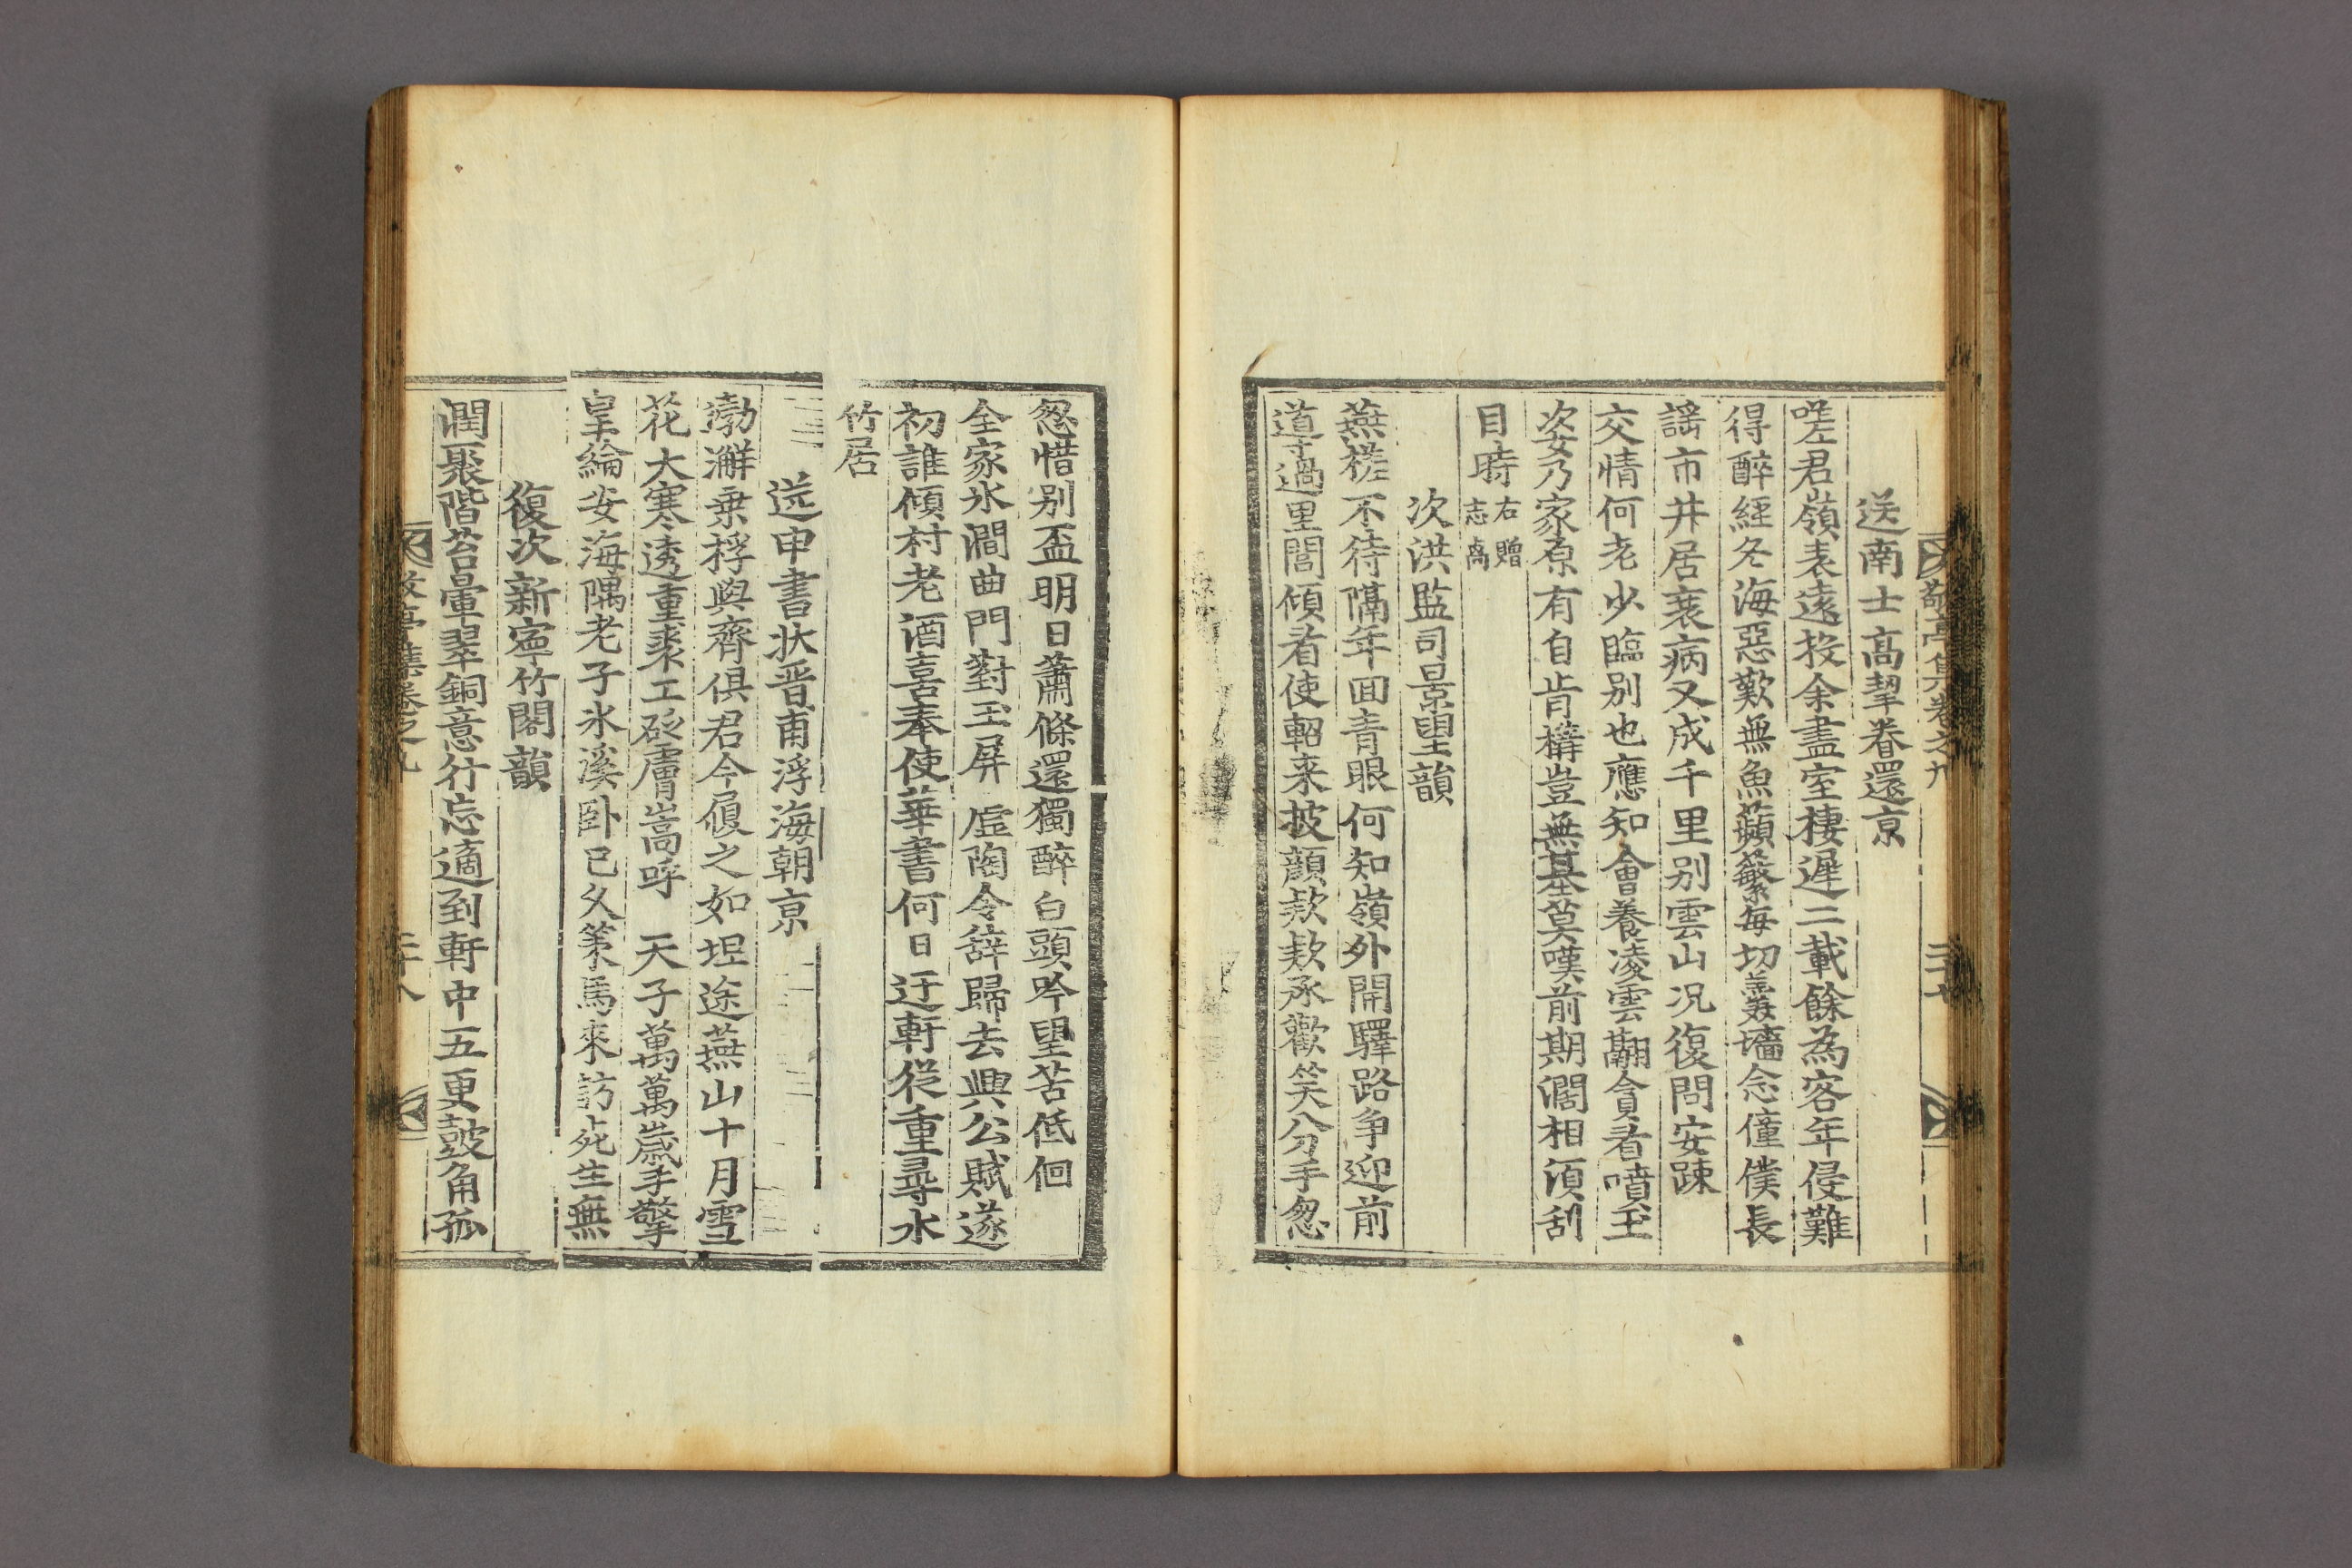 敬亭集卷之九
二十七
送南士高挈眷還京
嗟君嶺表遠投余盡室棲遲二載餘為客年侵難
得醉經冬海惡歎無魚蘋蘩每切羹墻念僮僕長
謠市井居衰病又成千里別雲山况復問安踈
交情何老少臨別也應知會養凌雲翮貪看噴玉
姿乃家原有自肯構豈無基莫嘆前期濶相湏刮
目時
右贈
志卨
次洪監司景望韻
燕槎不待隔年回青眼何知嶺外開驛路争迎前
導過里閭傾看使軺来披顔款款承歡笑分手忽
忽惜别盃明日蕭條還獨醉白頭吟望苦低佪
全家氷澗曲門對玉屏虛陶令辭歸去興公賦遂
初誰傾村老酒喜奉使華書何日迂軒從重尋水
竹居
送申書状晋甫浮海朝京
渤澥乗桴與齊俱君今履之如坦途燕山十月雪
花大寒透重裘工砭膚嵩呼 天子萬萬歲手擎
皇綸安海隅老子氷溪卧已久策馬來訪死生無
復次新寧竹閣韻
潤聚階苔暈翠銅意行忘適到軒中五更鼓角孤
敬亭集卷之九
二十八